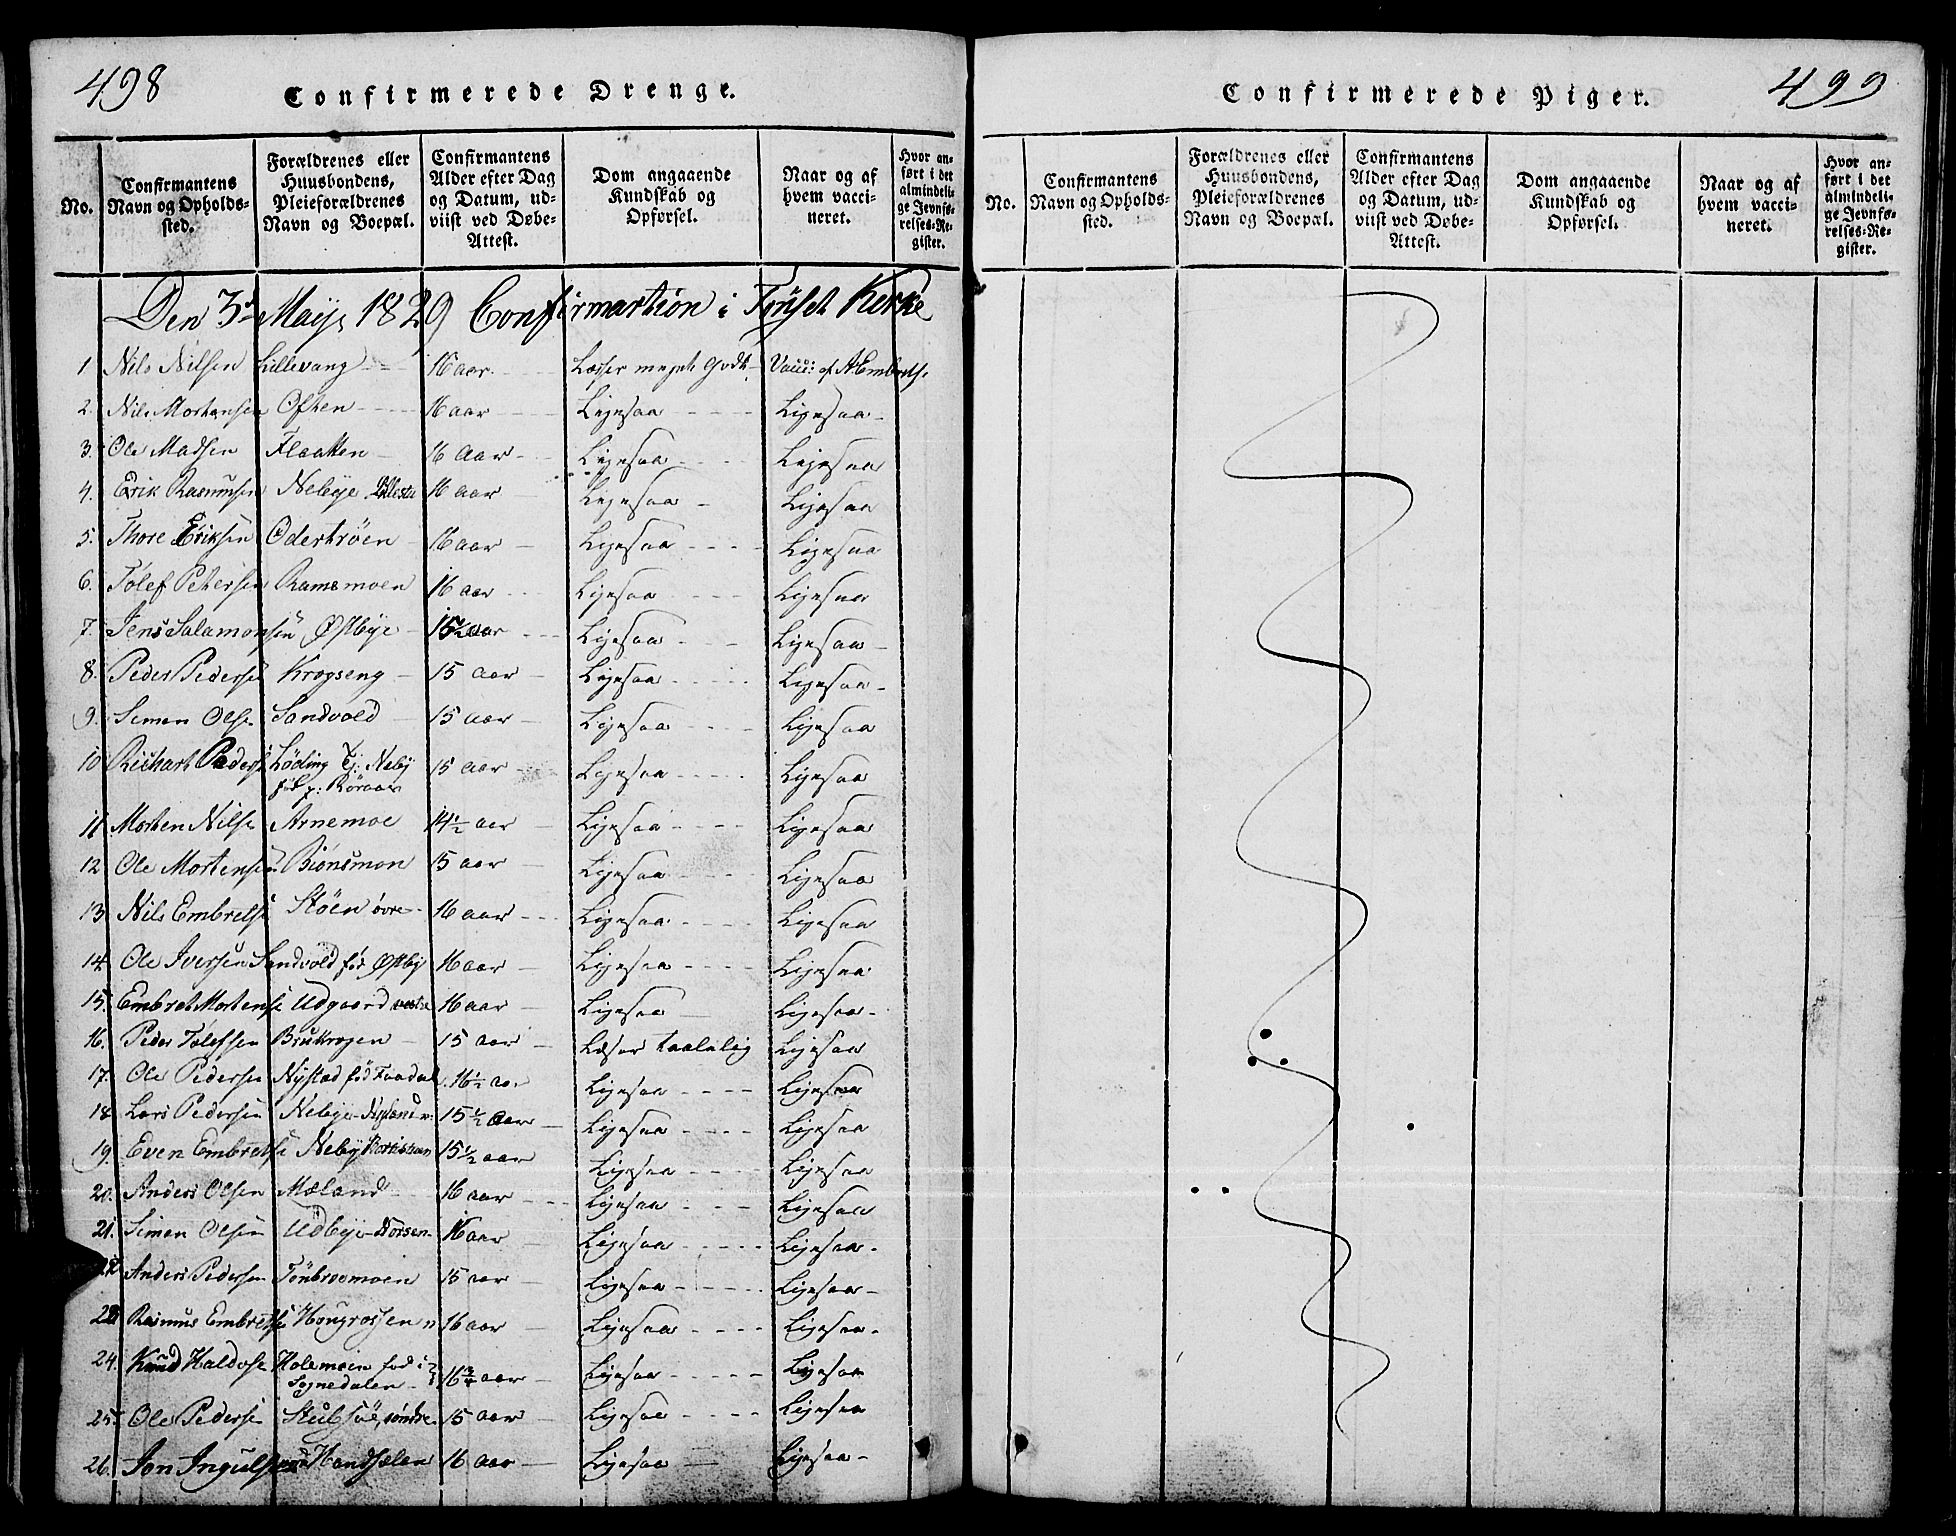 498
Confirmerede Drenge.
No.
Confirmantens Navn og Opholds=sted.
Forældrenes eller Huusbondens, Pleieforældrenes Navn og Boepæl.
Confirmantens Alder efter Dag og Datum, ud=viist ved Døbe=Attest.
Dom angaaende Kundskab og Opførsel.
Naar og af hvem vacci=neret.
Hvor an=ført i det almindeli=ge Jevnfø=relses=Re=gister.
Den 3de Maij 1829 Confirmartion i Tønset Kerke
1 Nils Nilsen Lillevang 16 aar Læsser meget Godt Vacc: af A Embrets.
2. Nils Mortensen Often 16 aar Ligesaa Ligesaa
3. Ole Madsen Flaatten 16 Aar Ligesaa Ligesaa
4. Erik Rasmusen Nebye 16 aar Ligesaa Ligesaa
5. Thore Eriksen Oderstrøen 16 aar Ligesaa Ligesaa
6. Tølef Petersen Ramsmoen 16 aar Ligesaa Ligesaa
7. Jens Salamonsen Østbye 15½ aar Ligesaa Ligesaa
8. Peder Pedersen Krogseng 15 aar Ligesaa Ligesaa
9. Simen Olse Sandvold 15 aar Ligesaa Ligesaa
10 Richart Peders Løding Ej: Neby 15 aar Ligesaa Ligesaa
født p: Röraas
11 Morten Nilse Arnemoe 14½ aar Ligesaa Ligesaa
12 Ole Mortensen Biönsmon 15 aar Ligesaa Ligesaa
13 Nils Embretse Støen øvre 16 aar Ligesaa Ligesaa
14 Ole Iversen Sandvold fød Østby 16 aar Ligesaa Ligesaa
15. Embret Mortense Udgaard 16 aar Ligesaa Ligesaa
16. Peder Tølefsen Brukrogen 15 aar Læser taalelig Ligesaa
17. Ole Pedersen Nystad fød Faadal 16½ aar Ligesaa Ligesaa
18 Lars Pedersen Nebye 15½ aar Ligesaa Ligesaa
19. Even Embretse Neby 15½ aar Ligesaa Ligesaa
20. Anders Olsen Mæland 16 aar Ligesaa Ligesaa
21. Simen Olsen Udbye 16 aar Ligesaa Ligesaa
22 Anders Pedersen Tönbroemoen 15 aar Ligesaa Ligesaa
23 Rasmus Embretse 16 aar Ligesaa Ligesaa
24. Knud Haldose Holemoen fød i 16¾ aar Ligesaa Ligesaa
Sognedalen
25 Ole Pedersen Stubsøe, søndre 15 aar Ligesaa Ligesaa
26. Jon Ingulsen 16 aar Ligesaa Ligesaa
499
Confirmerede Piger.
No.
Confirmantens Navn og Opholds=sted.
Forældrenes eller Huusbondens, Pleieforældrenes Navn og Boepæl.
Confirmantens Alder efter Dag og Datum, ud=viist ved Døbe=Attest.
Dom angaaende Kundskab og Opførsel.
Naar og af hvem vacci=neret.
Hvor an=ført i det almindeli=ge Jevnfø=relses=Re=gister.